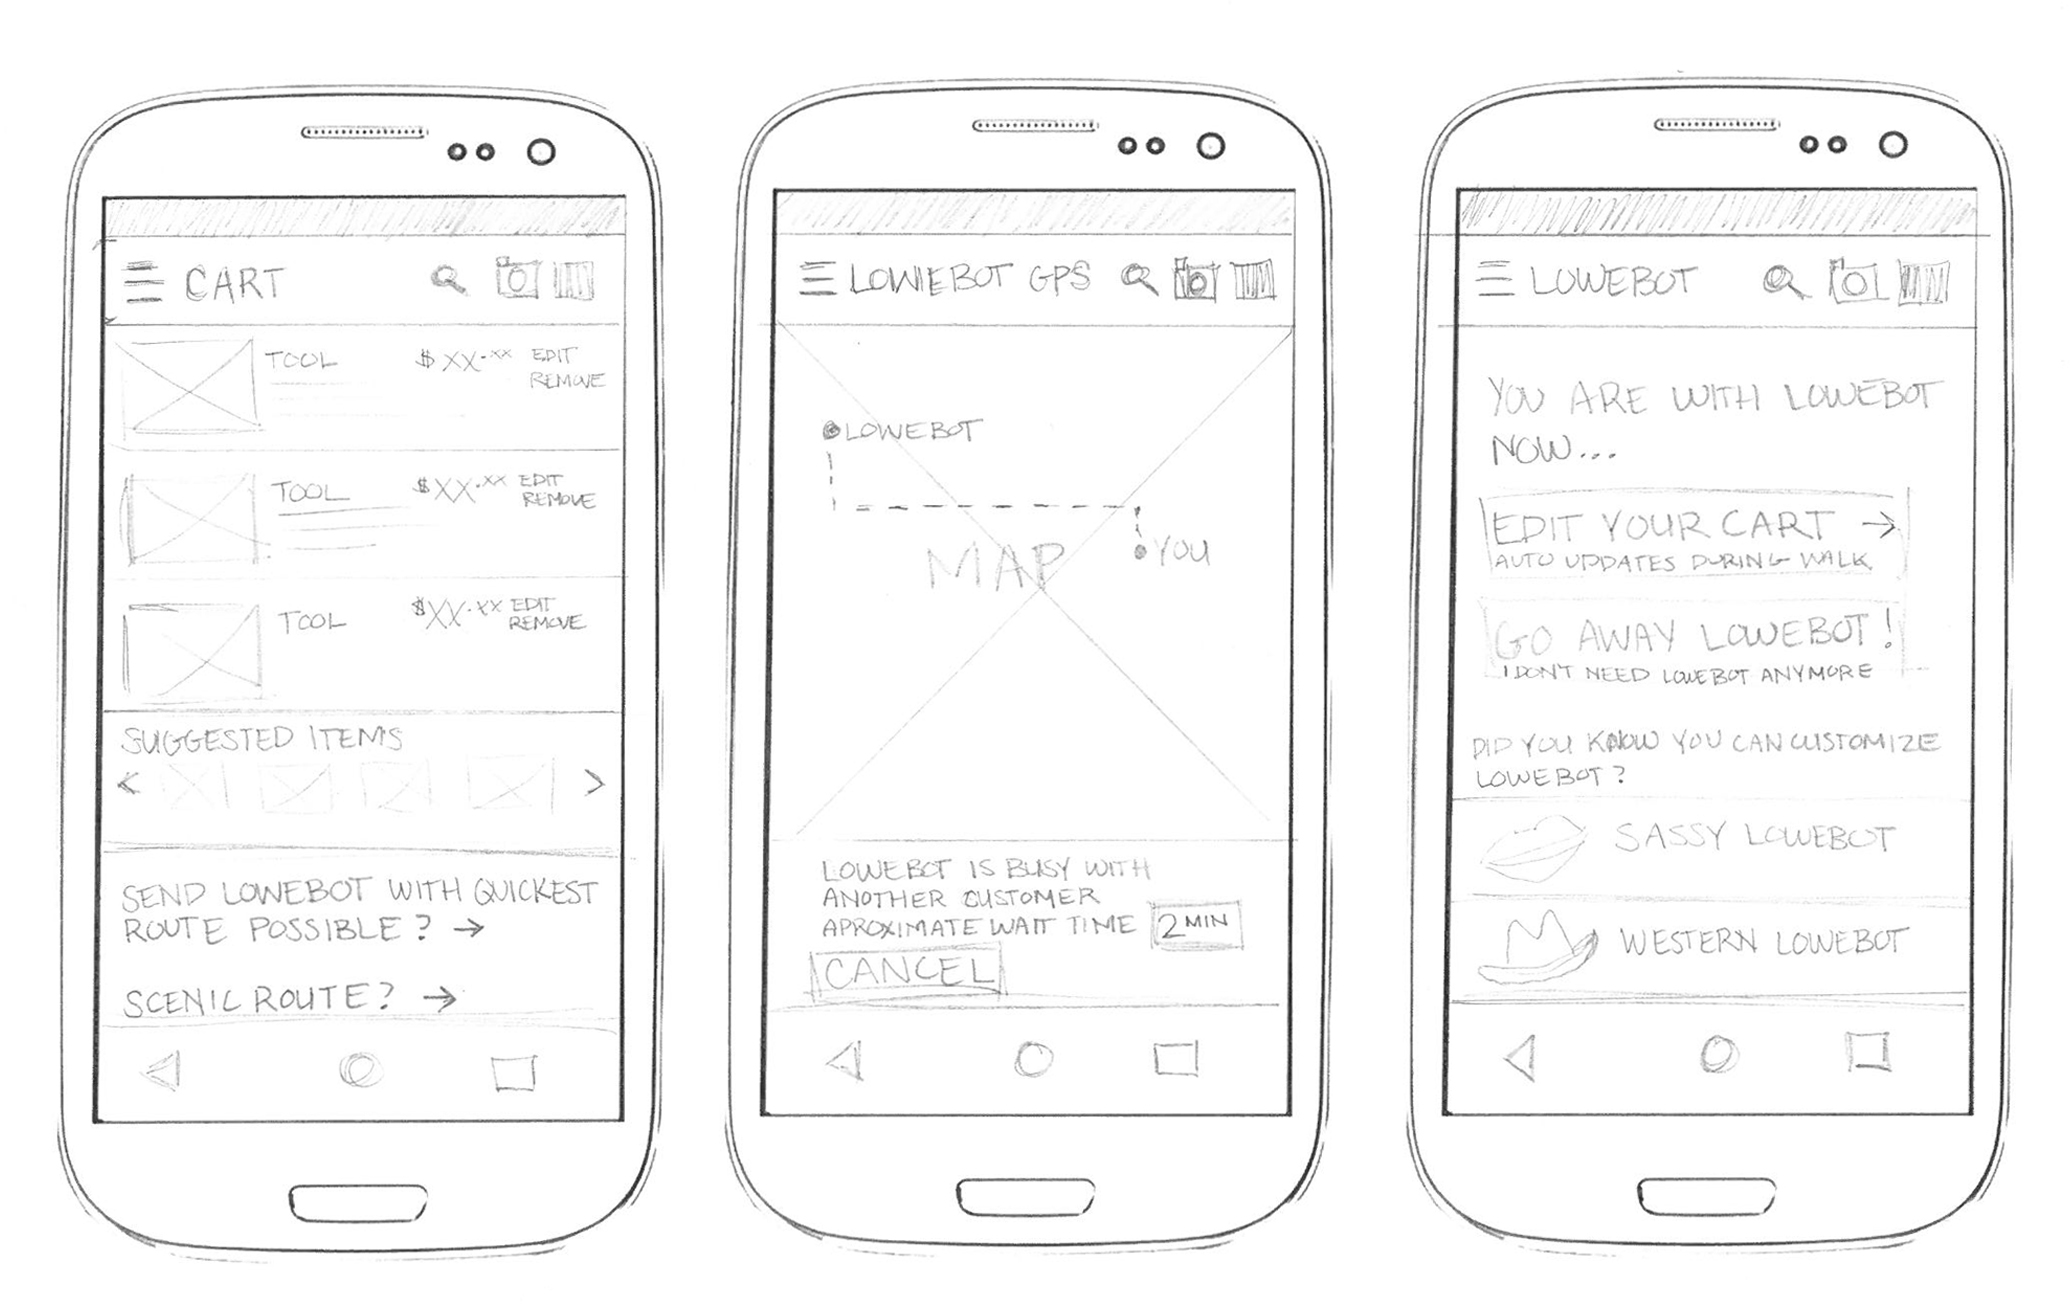 CART
TOOL $XX.XX EDIT
REMOVE
TOOL $XX.XX EDIT
REMOVE
TOOL $XX.XX EDIT
REMOVE
SUGGESTED ITEMS
< >
SEND LOWEBOT WITH QUICKEST
ROUTE POSSIBLE? →
SCENIC ROUTE? →
LOWEBOT GPS
LOWEBOT
YOU
MAP
LOWEBOT IS BUSY WITH
ANOTHER CUSTOMER
APROXIMATE WAIT TIME 2 MIN
CANCEL
LOWEBOT
YOU ARE WITH LOWEBOT
NOW...
EDIT YOUR CART →
AUTO UPDATES DURING WALK
GO AWAY LOWEBOT!
I DON'T NEED LOWEBOT ANYMORE
DID YOU KNOW YOU CAN CUSTOMIZE
LOWEBOT?
SASSY LOWEBOT
WESTERN LOWEBOT